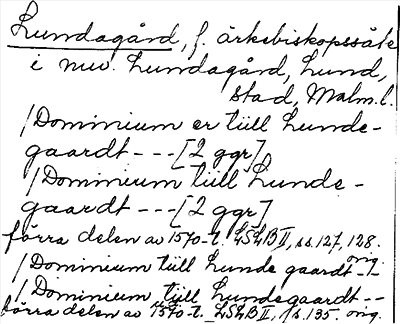 Lundagård, f. ärkebiskopssäte
i nuv. Lundagård, Lund,
stad, Malm. l.
/Dominium er tüll Lunde-
gaardt --- [2 ggr]
/Dominium tüll Lunde-
gaardt --- [2 ggr]
förra delen av 1570-t. LSLB II, ss. 127, 128.
orig.
/Dominium tüll Lunde gaardt -/-
/Dominium tüll Lundegaardt --
förra delen av 1570-t. LSLB II, s. 135. orig.